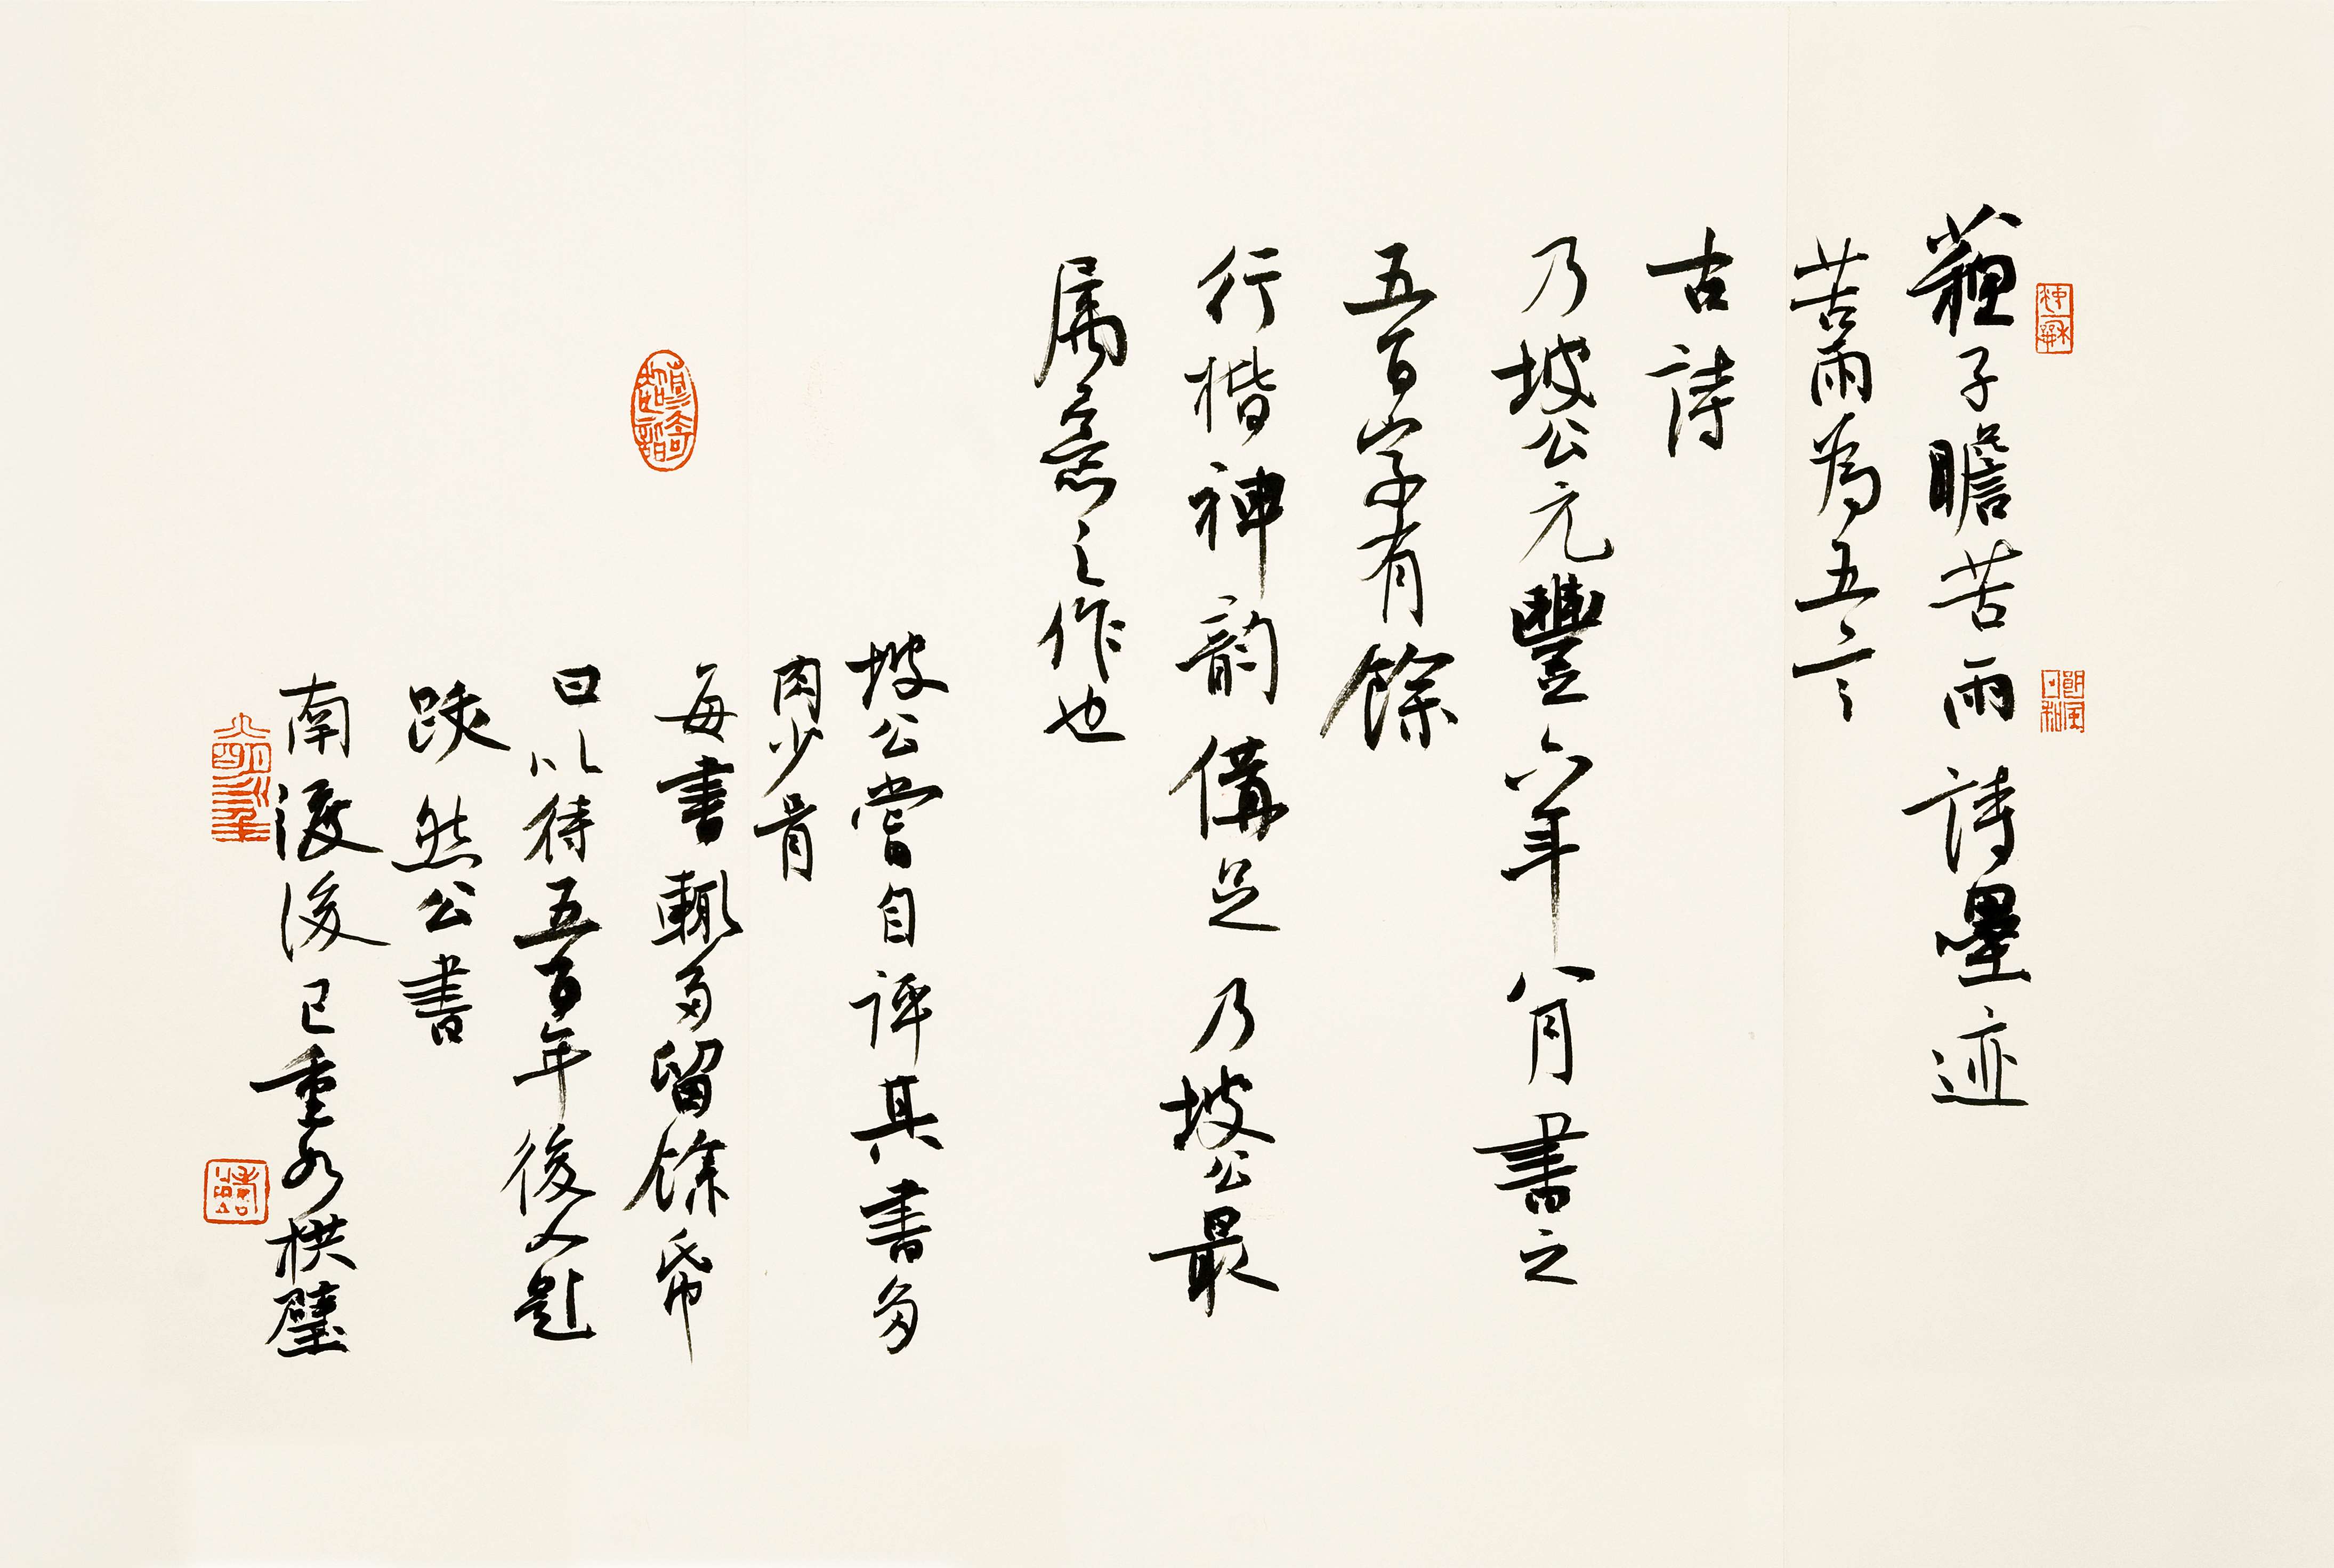 蘇子瞻苦雨詩墨迹
苦雨為五言
古詩
乃坡公元豐六年八月書之
五百字有餘
行楷神韵備足乃坡公最
屬意之作也
坡公嘗自評其書多
肉少骨
每書輒多留餘帋
曰以待五百年後人題
跋然公書
南渡後已重如拱璧